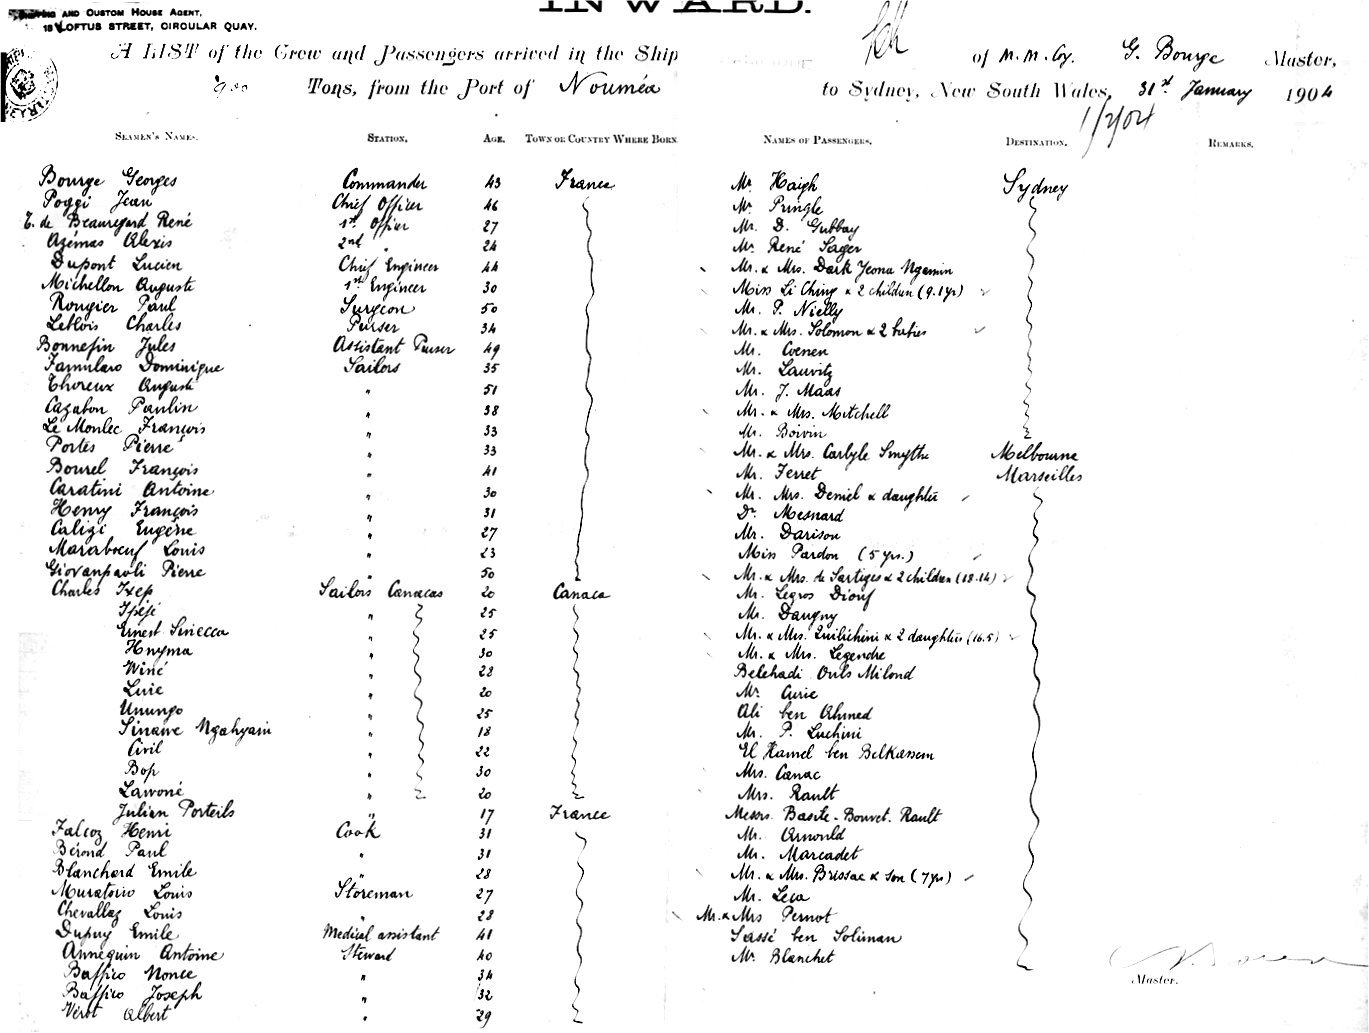 INWARD.
AND CUSTOM HOUSE AGENT,
LOFTUS STREET, CIRCULAR QUAY.
A LIST of the Crew and Passengers arrived in the Ship of M.M. Cy. G. Bourge Master,
900 Tons, from the Port of Nouméa to Sydney, New South Wales, 31st January 1904
1/2/04
SEAMEN'S NAMES. STATION. AGE. TOWN OR COUNTRY WHERE BORN NAMES OF PASSENGERS. DESTINATION. REMARKS.
Bourge Georges Commander 43 France
Poggi Jean Chief Officer 46
T. de Beauregard René 1st Officer 27
Azémas Alexis 2nd " 24
Dupont Lucien Chief Engineer 44
Michellon Auguste 1st Engineer 30
Rougier Paul Surgeon 50
Leblois Charles Purser 34
Bonnefin Jules Assistant Purser 49
Famularo Dominique Sailors 35
Thoreux Auguste " 51
Cazabon Paulin " 38
Le Monlec François " 33
Portes Pierre " 33
Bourel François " 41
Caratini Antoine " 30
Henry François " 31
Caligi Eugène " 27
Marabœuf Louis " 23
Giovanpaoli Pierre " 50
Charles Ixep Sailors Canacas 20 Canaca
Ipéjé " 25
Ernest Sinecca " 25
Hnyma " 30
Winé " 28
Luie " 20
Unungo " 25
Sinawe Ngahyain " 18
Civil " 22
Bop " 30
Lawoné " 20
Julian Porteils " 17 France
Falcoz Henri Cook 31
Bérond Paul " 31
Blanchard Emile " 28
Muratorio Louis Storeman 27
Chevallaz Louis " 28
Dupuy Emile Medical assistant 41
Annequin Antoine Steward 40
Baffico Nonce " 34
Baffico Joseph " 32
Vérot Albert " 29
Mr. Haigh Sydney
Mr. Pringle
Mr. D. Gubbay
Mr. René Sager
Mr. & Mrs. Dark Yeona Ngamin
Miss Li Ching & 2 children (9.1 yr)
Mr. P. Nielly
Mr. & Mrs. Solomon & 2 babies
Mr. Coenen
Mr. Lauvitz
Mr. J. Maas
Mr. & Mrs. Mitchell
Mr. Boivin
Mr. & Mrs. Carlyle Smythe Melbourne
Mr. Ferret Marseilles
Mr. Mrs. Demiel & daughter
Dr. Mesnard
Mr. Darison
Miss Pardon (5 yrs.)
Mr. & Mrs. de Sartiges & 2 children (18.14)
Mr. Legros Diouf
Mr. Daugny
Mr. & Mrs. Quilichini & 2 daughters (16.5)
Mr. & Mrs. Legendre
Belehadi Ouls Miloud
Mr. Curie
Ali ben Ahmed
Mr. P. Luchini
El Hamel ben Belkassem
Mrs. Canac
Mrs. Rault
Messrs. Basite - Bouvet. Rault
Mr. Arnould
Mr. Marcadet
Mr. & Mrs. Brissac & son (7 yrs)
Mr. Leca
Mr. & Mrs Pernot
Sassé ben Soliman
Mr. Blanchet
Master.